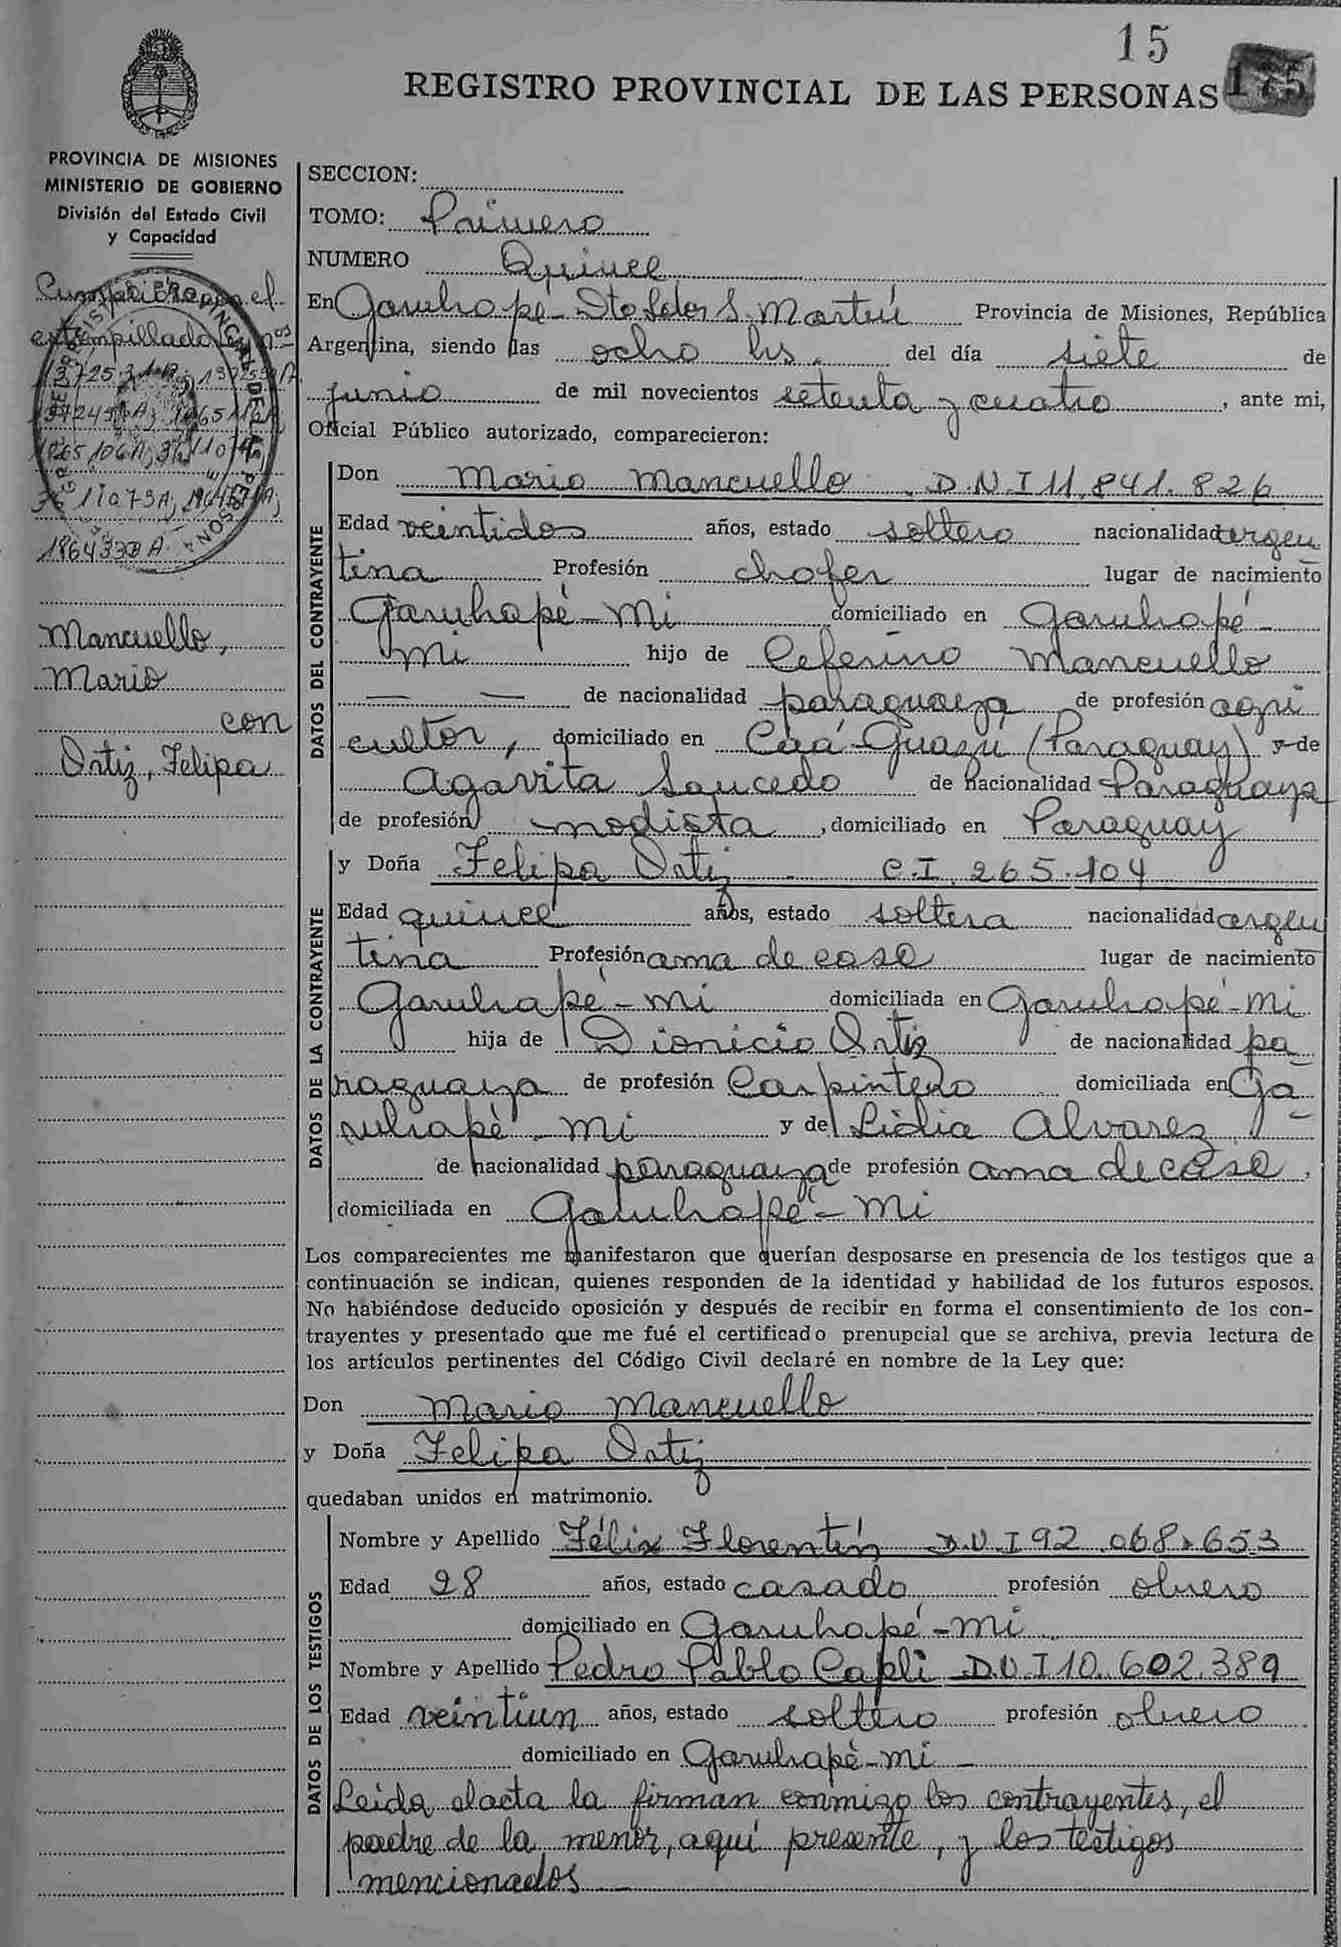 15
REGISTRO PROVINCIAL DE LAS PERSONAS 175
PROVINCIA DE MISIONES
MINISTERIO DE GOBIERNO
División del Estado Civil
y Capacidad
el
extampillado nos
Mancuello,
Mario
con
Ortiz, Felipa
SECCION:
TOMO: Primero
NUMERO Quince
En Garuhape - Dto Ldor S. Martín Provincia de Misiones, República
Argentina, siendo las ocho hs. del día siete de
junio de mil novecientos setenta y cuatro, ante mi,
Oficial Público autorizado, comparecieron:
DATOS DEL CONTRAYENTE
Don Mario Mancuello D.N.I 11.841.826
Edad veintidos años, estado soltero nacionalidad argen
tina Profesión chofer lugar de nacimiento
Garuhapé - Mi domiciliado en Garuhapé -
Mi hijo de Ceferino Mancuello
— — de nacionalidad paraguaya de profesión agri
cultor, domiciliado en Caá-Guazú (Paraguay) y de
Agavita Saucedo de nacionalidad Paraguaya
de profesión modista, domiciliado en Paraguay
DATOS DE LA CONTRAYENTE
y Doña Felipa Ortiz C.I. 265.104
Edad quince años, estado soltera nacionalidad argen
tina Profesión ama de casa lugar de nacimiento
Garuhapé - mi domiciliada en Garuhapé - mi
hija de Dionicio Ortiz de nacionalidad pa
raguaya de profesión Carpintero domiciliada en Ga
ruhapé - mi y de Lidia Alvarez
de nacionalidad paraguaya de profesión ama de casa,
domiciliada en Garuhapé - mi
Los comparecientes me manifestaron que querían desposarse en presencia de los testigos que a
continuación se indican, quienes responden de la identidad y habilidad de los futuros esposos.
No habiéndose deducido oposición y después de recibir en forma el consentimiento de los con-
trayentes y presentado que me fué el certificado prenupcial que se archiva, previa lectura de
los artículos pertinentes del Código Civil declaré en nombre de la Ley que:
Don Mario Mancuello
y Doña Felipa Ortiz
quedaban unidos en matrimonio.
DATOS DE LOS TESTIGOS
Nombre y Apellido Félix Florentín D.N.I 92.068.653
Edad 28 años, estado casado profesión obrero
domiciliado en Garuhapé - mi
Nombre y Apellido Pedro Pablo Capli D.N.I 10.602.389
Edad veintiun años, estado soltero profesión obrero
domiciliado en Garuhapé - mi
Leida elacta la firman conmigo los contrayentes, el
padre de la menor, aquí presente, y los testigos
mencionados